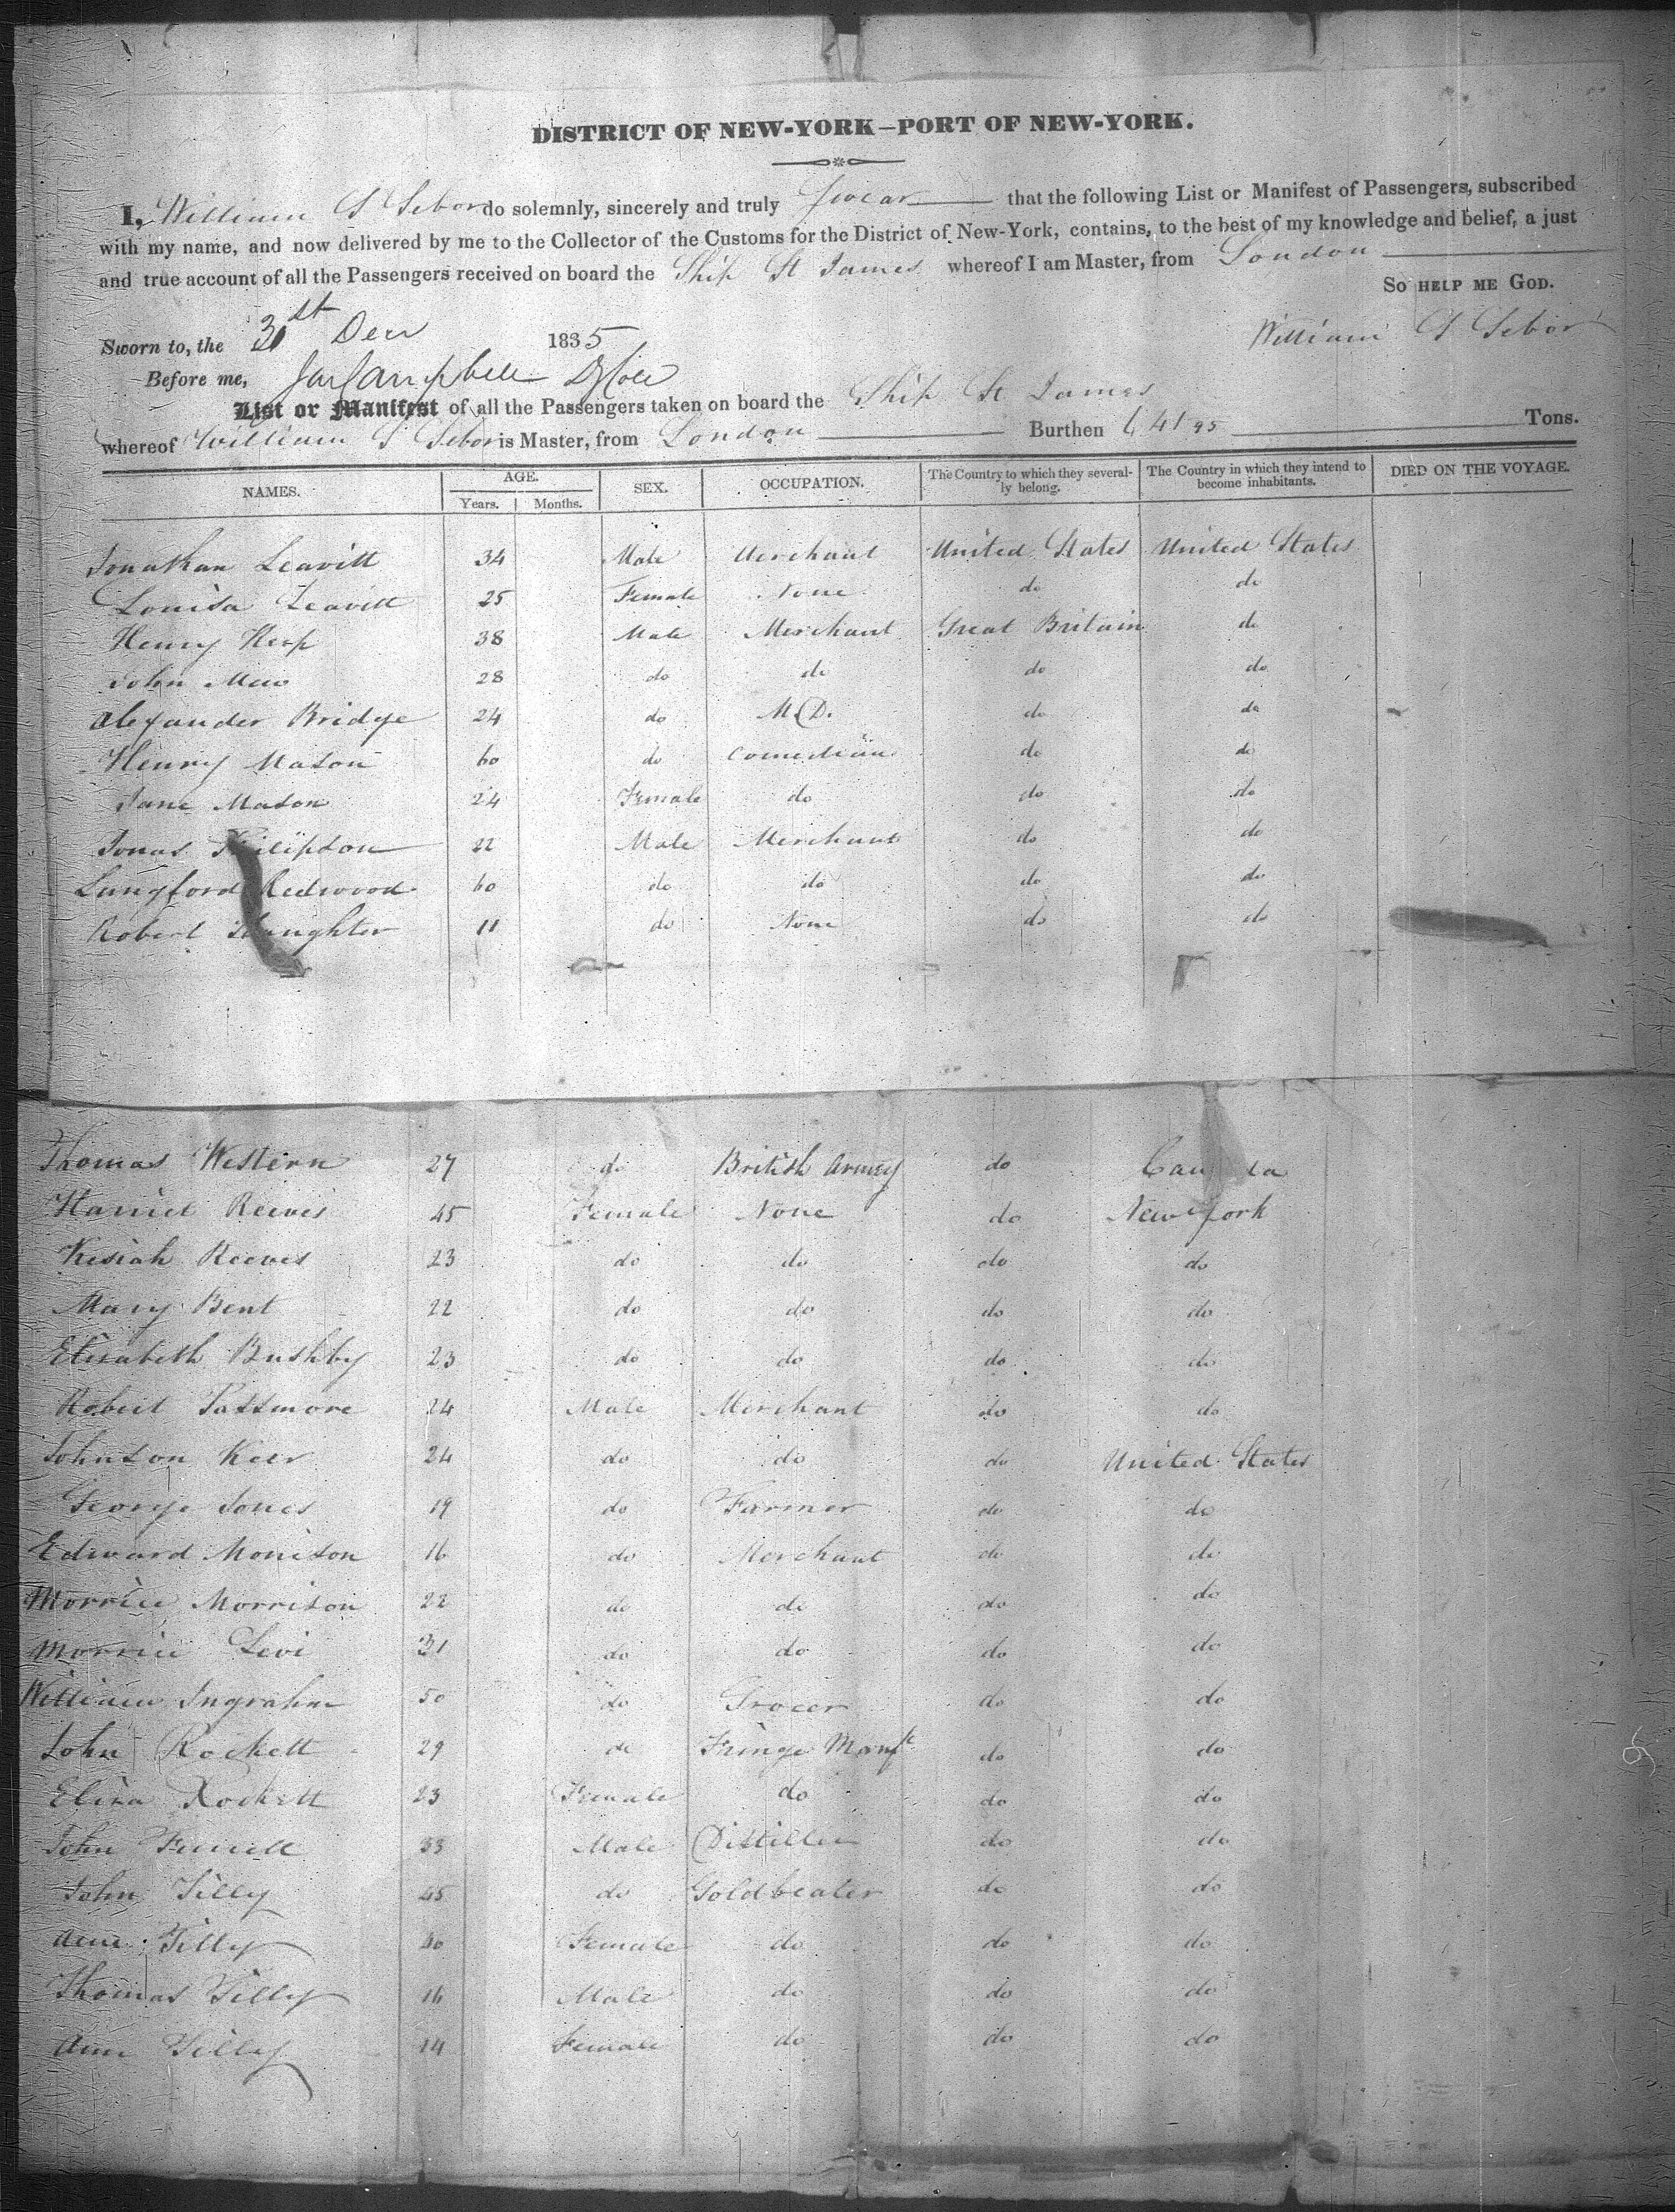 DISTRICT OF NEW-YORK—PORT OF NEW-YORK.
I, William S Sebor do solemnly, sincerely and truly swear that the following List or Manifest of Passengers, subscribed
with my name, and now delivered by me to the Collector of the Customs for the District of New-York, contains, to the best of my knowledge and belief, a just
and true account of all the Passengers received on board the Ship St James whereof I am Master, from London
SO HELP ME GOD.
Sworn to, the 31st Decr 1835 William S Sebor
Before me, Campbell
List or Manifest of all the Passengers taken on board the Ship St James
whereof William S Sebor is Master, from London Burthen 641 95 Tons.
NAMES. AGE. Years. Months. SEX. OCCUPATION. The Country to which they severally belong. The Country in which they intend to become inhabitants. DIED ON THE VOYAGE.
Jonathan Leavitt 34 Male Merchant United States United States
Louisa Leavitt 25 Female None do do
Henry 38 Male Merchant Great Britain do
John 28 do do do do
Alexander Bridge 24 do M.D. do do
Henry Mason 60 do Comedian do do
Jane Mason 24 Female do do do
Jonas 22 Male Merchant do do
Langford Redwood 60 do do do do
Robert Slaughter 11 do None do do
Thomas Western 27 do British Army do Canada
Harriet Reeves 45 Female None do New York
Kesiah Reeves 23 do do do do
Mary Bent 22 do do do do
Elizabeth Bushby 23 do do do do
Robert Passmore 24 Male Merchant do do
Johnson Keer 24 do do do United States
George Jones 19 do Farmer do do
Edward Morrison 16 do Merchant do do
Morrice Morrison 22 do do do do
Morrice Levi 31 do do do do
William Ingrahm 50 do Grocer do do
John Rockett 29 do Fringe Manfr do do
Eliza Rockett 23 Female do do do
John 33 Male Distiller do do
John Tilly 45 do Goldbeater do do
Ann Tilly 40 Female do do do
Thomas Tilly 16 Male do do do
Ann Tilly 14 Female do do do